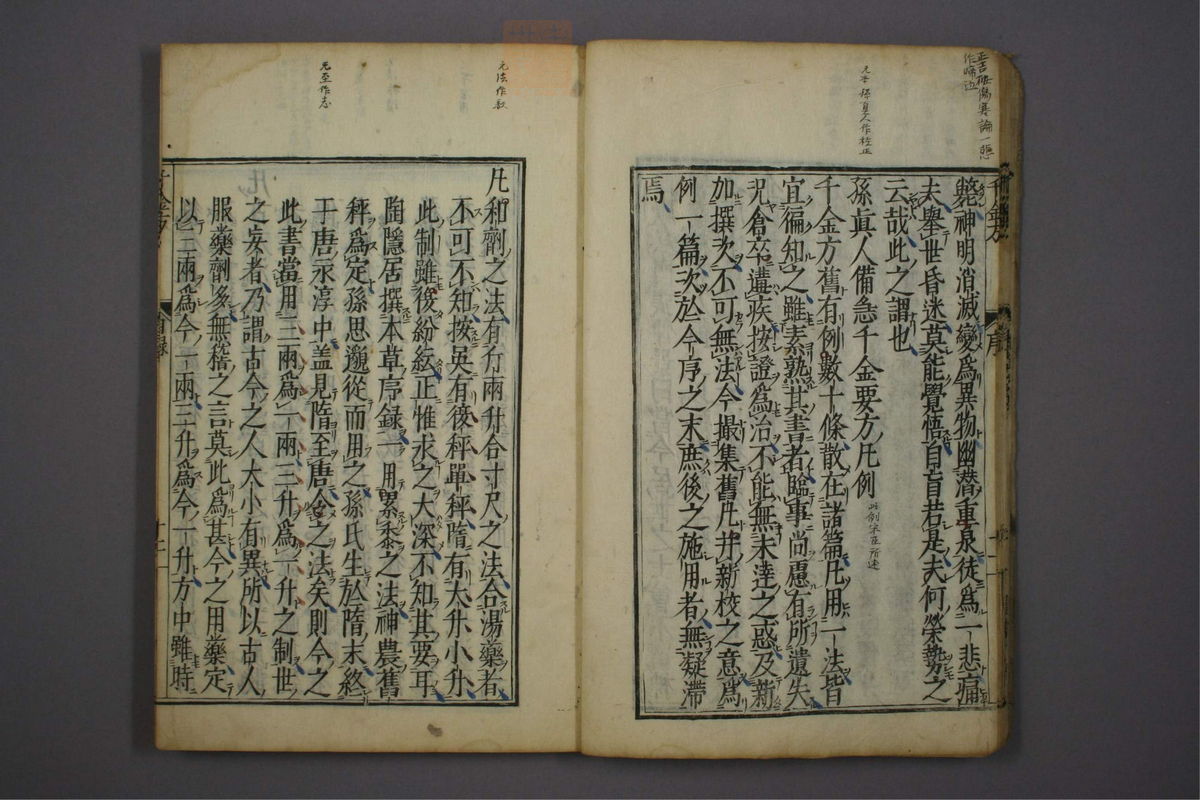 斃神明消滅變爲異物幽潜重泉徒爲一悲痛
夫舉世昏迷莫能覺悟自盲若是夫何榮勢之
云哉此之謂也
孫眞人備急千金要方凡例
千金方舊有例數十條散在諸篇凡用一法皆
宜徧知之雖素熟其書者臨事尚慮有所遺失
況倉卒遘疾按證爲治不能無未達之惑及新
加撰次不可無法今撮集舊凡并新校之意爲
例一篇次於今序之末庶後之施用者無凝滯
焉
凡和劑之法有斤兩升合寸尺之法合湯藥者
不可不知按吳有複秤單秤隋有大升小升
此制雖復紛紜正惟求之大深不知其要耳
陶隱居撰本草序録一用累黍之法神農舊
秤爲定孫思邈從而用之孫氏生於隋末終
于唐永淳中盖見隋至唐令之法矣則今之
此書當用三兩爲一兩三升爲一升之制世
之妄者乃謂古今之人大小有異所以古人
服藥劑多無稽之言莫此爲甚今之用藥定
以三兩爲今一兩三升爲今一升方中雖時
元法作敷
元至作志